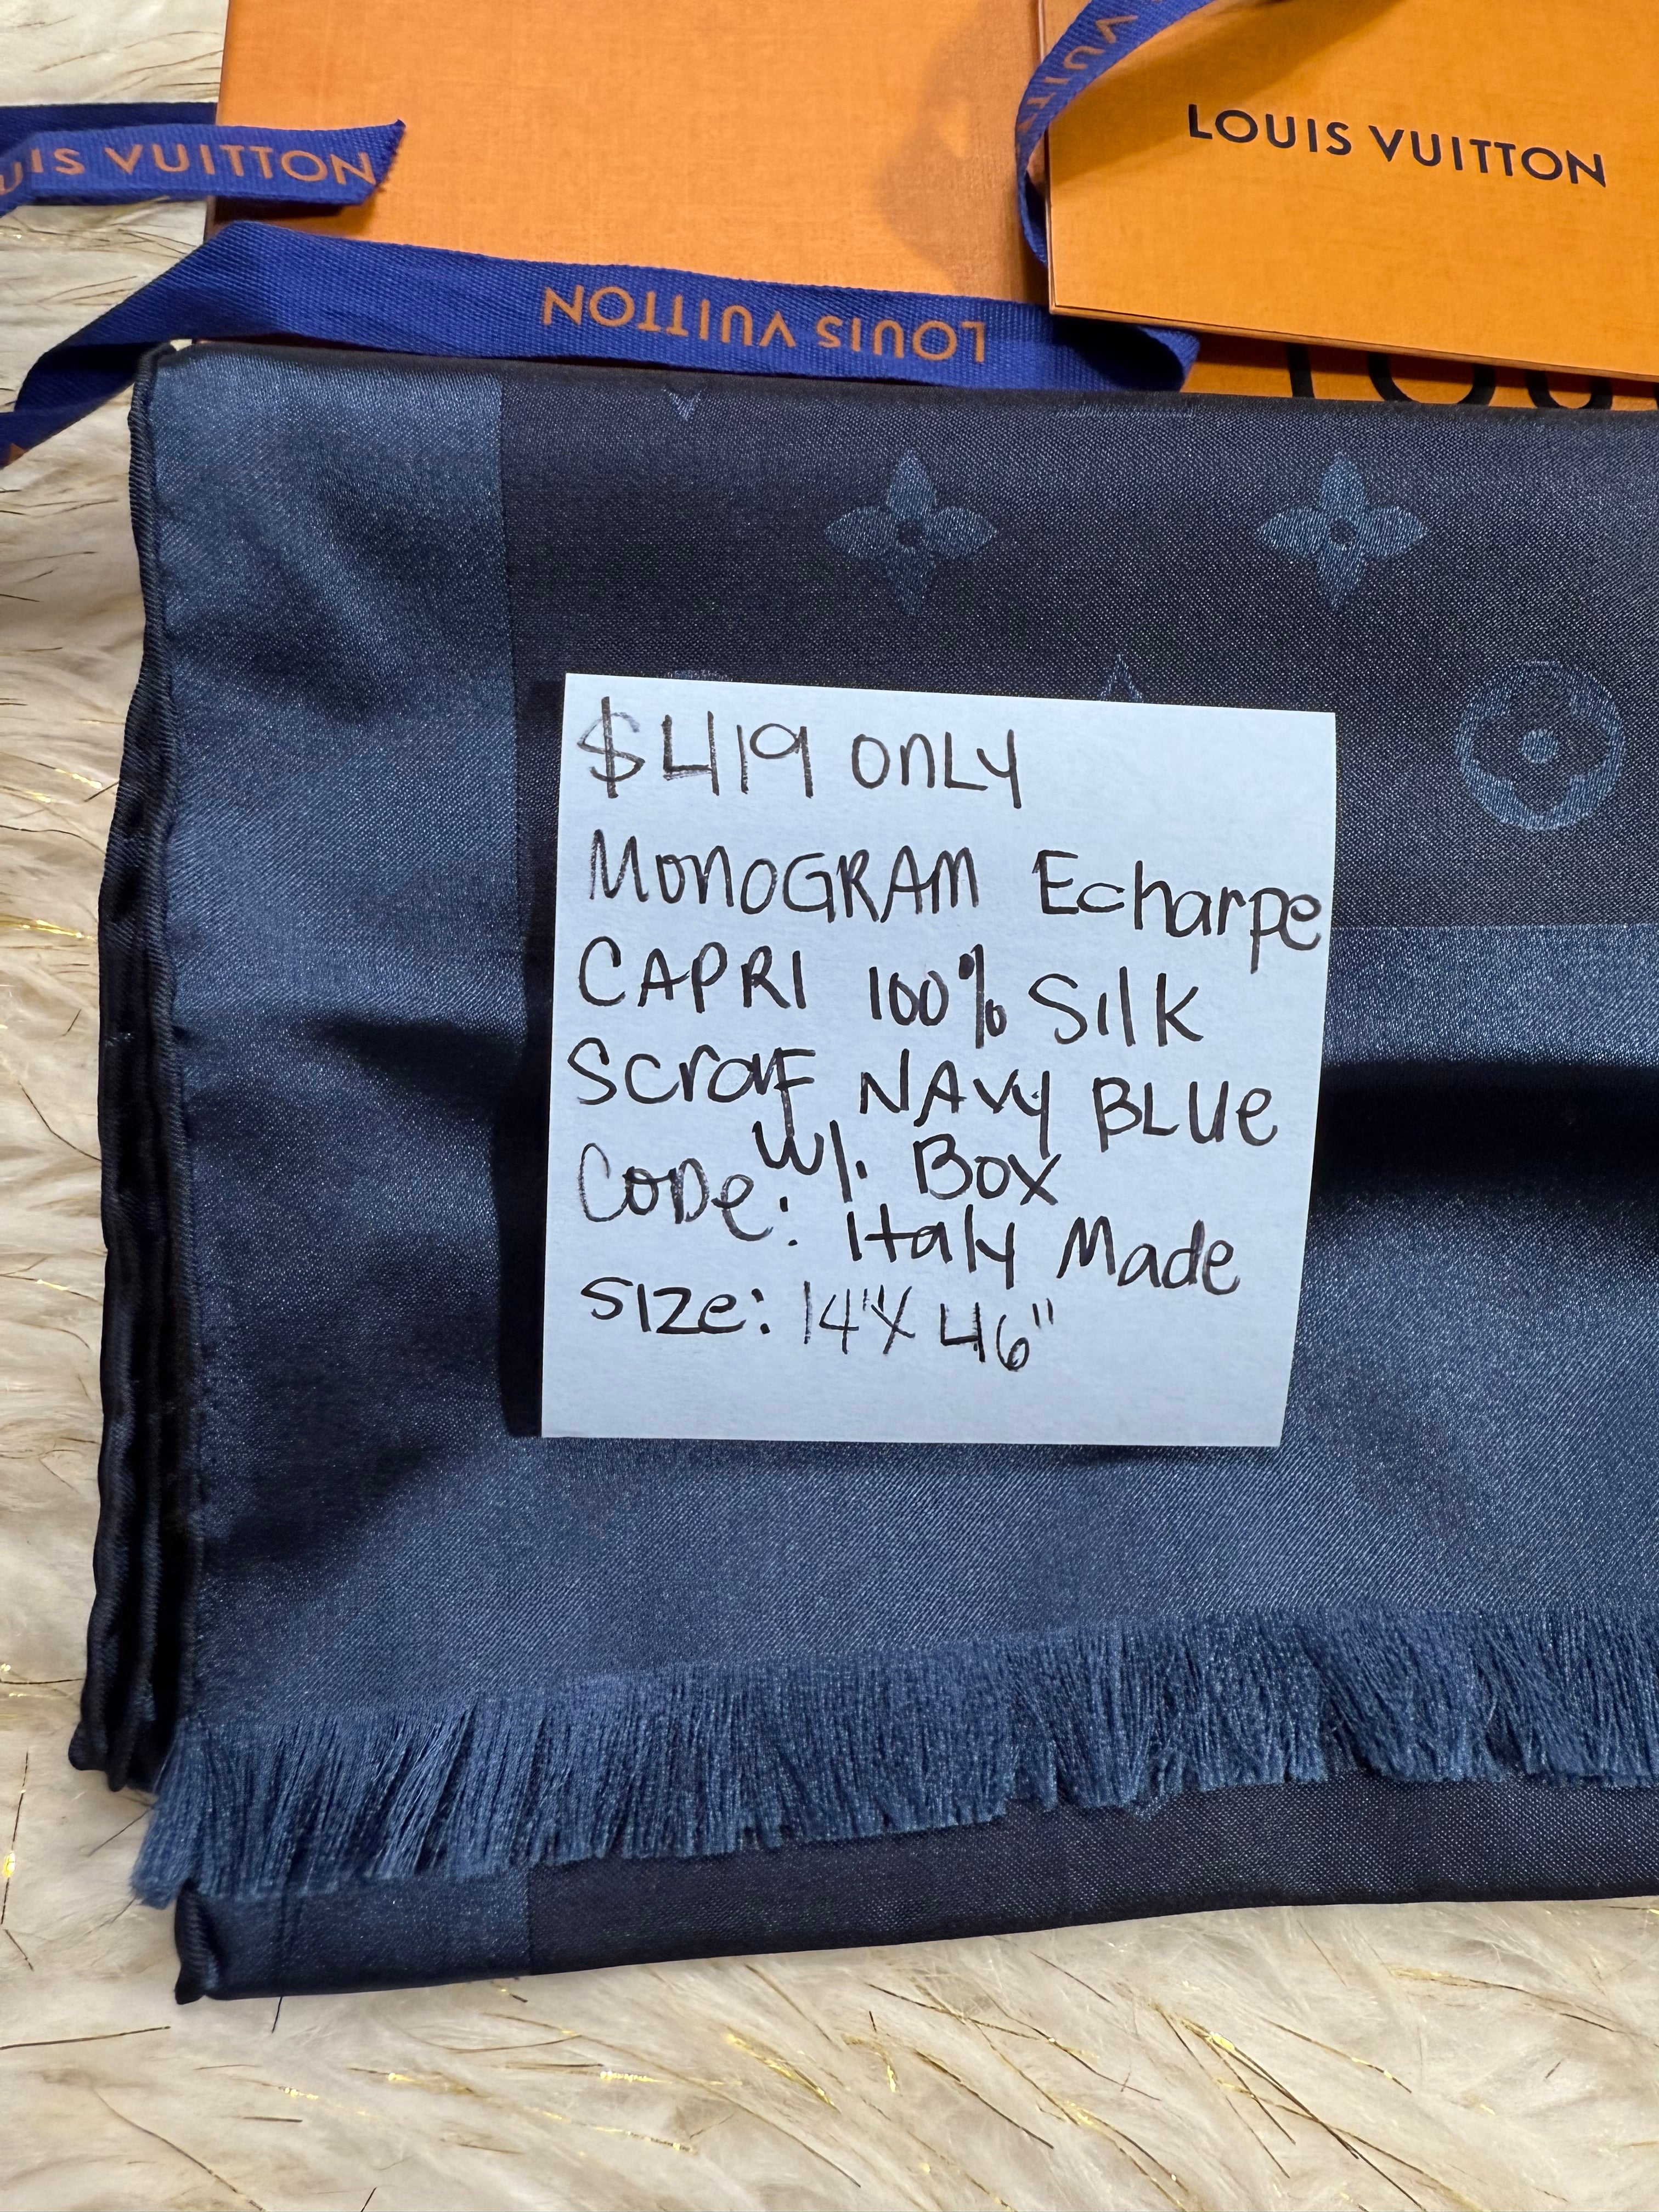 LOUIS VUITTON
UIS VUITTON
VUITT
LOUIS VUITTON
LOU
$419 ONLY
MONOGRAM Echarpe
CAPRI 100% Silk
Scrarf NAVY BLUE
W/. Box
CODe: Italy Made
Size: 14"X 46"